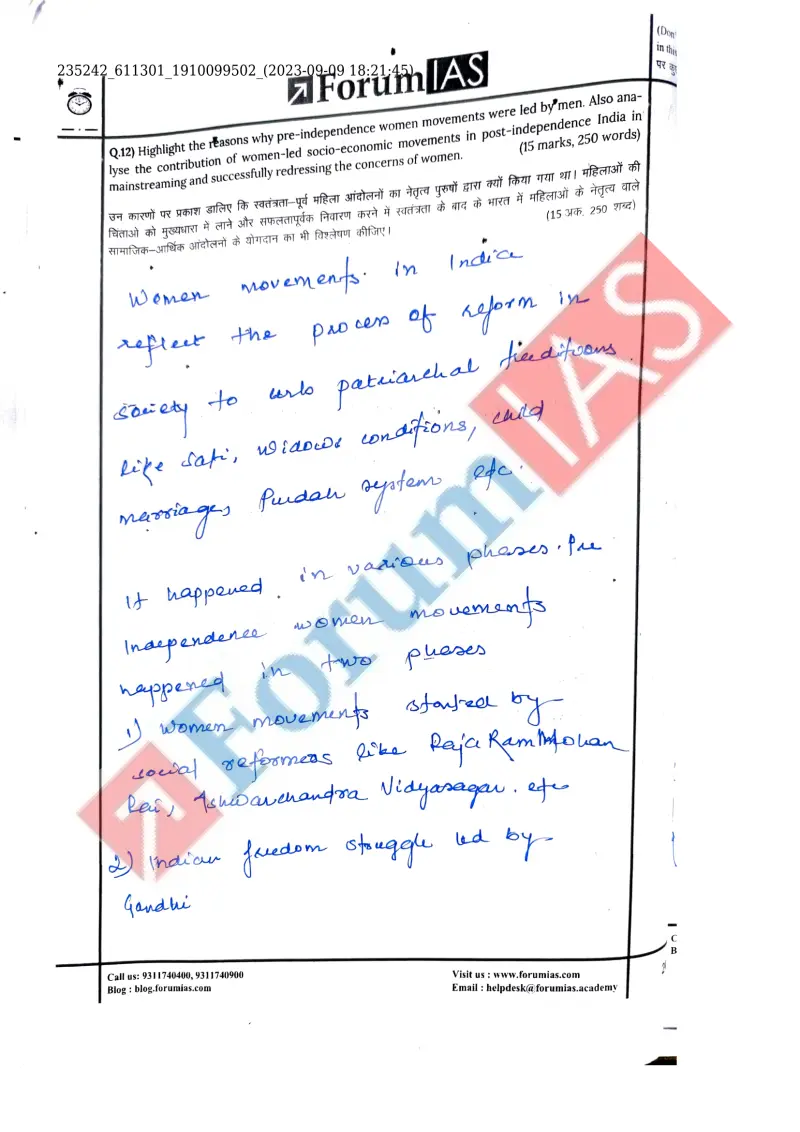 (Don'
in this
पर कु
235242_611301_1910099502_(2023-09-09 18:21:45)
ForumIAS
Q.12) Highlight the reasons why pre-independence women movements were led by men. Also ana-
lyse the contribution of women-led socio-economic movements in post-independence India in
mainstreaming and successfully redressing the concerns of women. (15 marks, 250 words)
उन कारणों पर प्रकाश डालिए कि स्वतंत्रता-पूर्व महिला आंदोलनों का नेतृत्व पुरुषों द्वारा क्यों किया गया था। महिलाओं की
चिंताओ को मुख्यधारा में लाने और सफलतापूर्वक निवारण करने में स्वतंत्रता के बाद के भारत में महिलाओं के नेतृत्व वाले
सामाजिक-आर्थिक आंदोलनों के योगदान का भी विश्लेषण कीजिए। (15 अंक, 250 शब्द)
Women movements in India
reflect the process of reform in
society to curb patriarchal traditions
like Sati, widows conditions, child
marriage, Purdah system etc.
It happened in various phases. Pre
Independence women movements
happened in two phases
1) Women movements started by
social reformers like Raja Ram Mohan
Rai, Ishwarchandra Vidyasagar. etc
2) Indian freedom struggle led by
Gandhi
ForumIAS
Call us: 9311740400, 9311740900
Blog : blog.forumias.com
Visit us : www.forumias.com
Email : helpdesk@forumias.academy
C
B